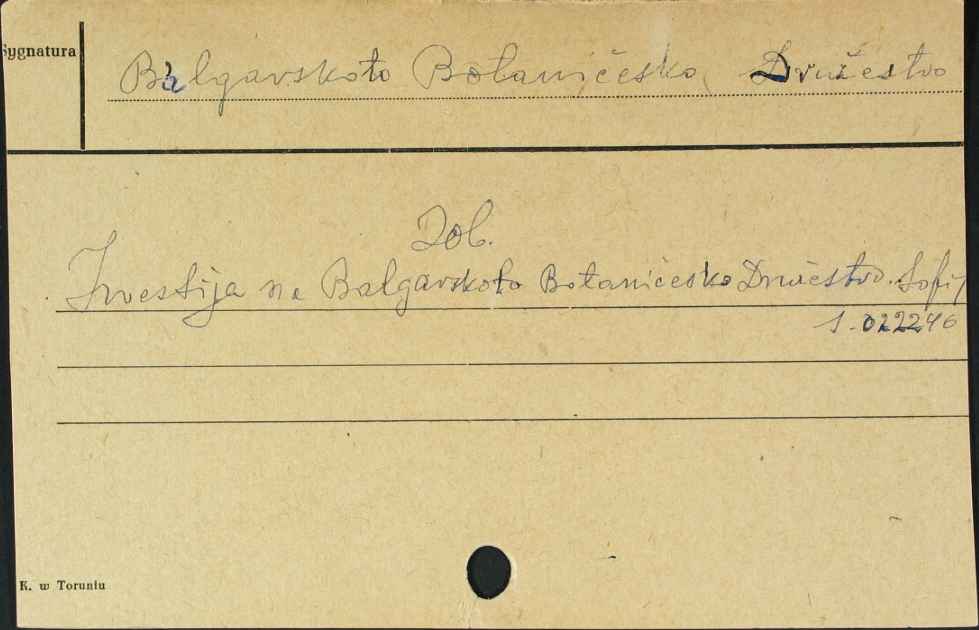 Sygnatura
Balgarskoto Botaničesko Družestvo
Zob.
Izvestija na Balgarskoto Botaničesko Družestvo. Sofij
1-022246
K. w Toruniu